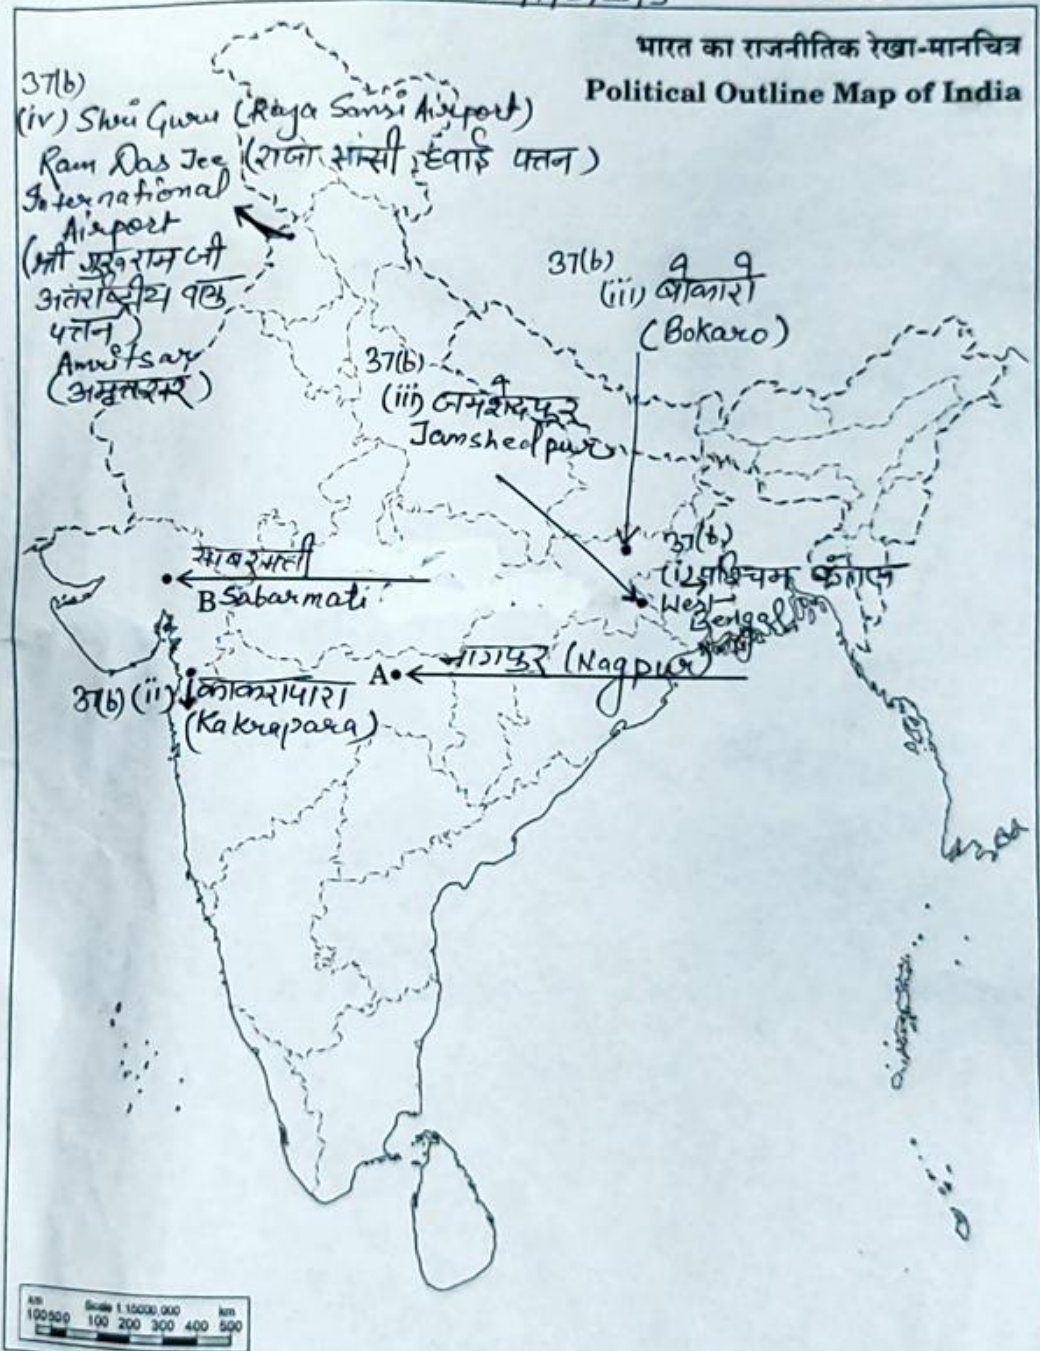 भारत का राजनीतिक रेखा-मानचित्र
Political Outline Map of India
37(b)
(iv) Shri Guru (Raja Sansi Airport)
Ram Das Jee (राजा सांसी हवाई पत्तन)
International
Airport
(श्री गुरु राम जी
अंतर्राष्ट्रीय
पत्तन)
Amritsar
(अमृतसर)
37(b)
(iii) बोकारो
(Bokaro)
37(b)
(iii) जमशेदपुर
Jamshedpur
37(b)
(i) पश्चिम बंगाल
West
Bengal
साबरमती
B Sabarmati
नागपुर (Nagpur)
A
37(b) (ii) काकरापारा
(Kakrapara)
km Scale 1:15000,000 km
100500 100 200 300 400 500